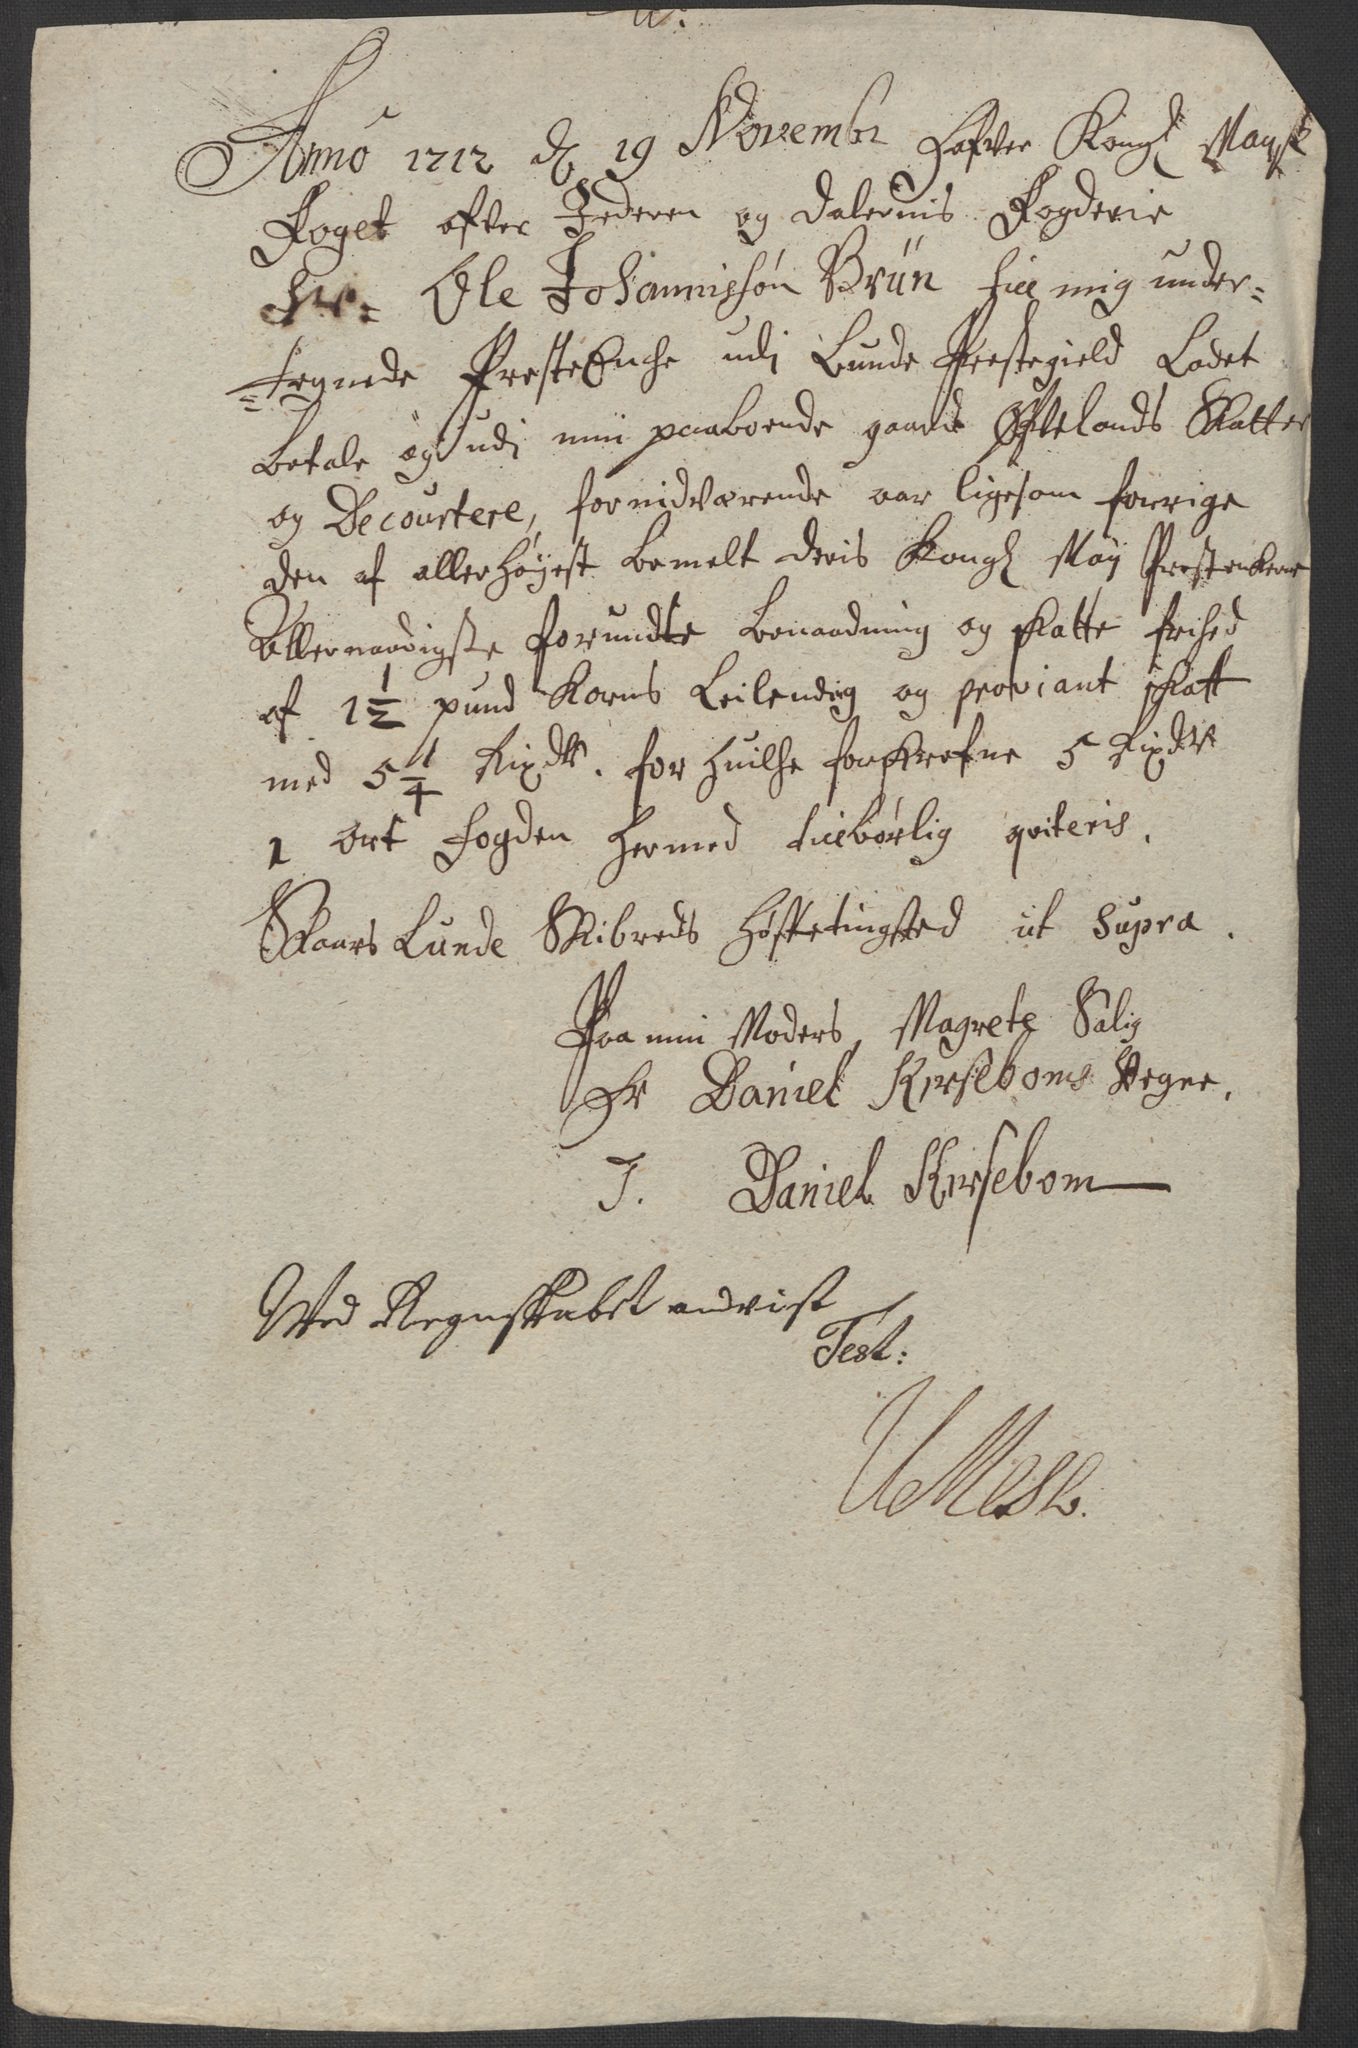 Anno 1712 d 19 Novembr Hafver Kongl Mayst
Foget ofver Jederen og Dalernis Fogderie
Sr= Ole Johannisøn Brün till mig under=
=tegnede PresteEnche udi Lunde Prestegield Ladet
betale og udi min paaboende gaard Østelands Skatter
og Decourtere, for nidværende aar ligesom forrige
den af allerhøyest bemelt deris Kongl May Presteenker
Allernaadigste forundte benaadning og skatte frihed
af 1 1/2 pund Korns Leilending og proviant skatt
med 5 1/4 Rixdr. for huilche forskrefne 5 Rixdr
1 ort fogden hermed tilbørlig qviteris.
Skaars Lunde Skibreds Høstetingsted ut Supra.
Paa min Moders, Magrete Salig
Hr Daniel Kirseboms Vegne,
J. Daniel Kirsebom
Ved Regnskabet andvist
Test: